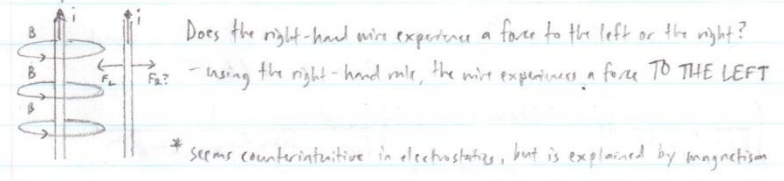 i i
B
Does the right-hand wire experience a force to the left or the right?
B FL FR?
- using the right-hand rule, the wire experiences a force TO THE LEFT
B
* seems counterintuitive in electrostatics, but is explained by magnetism